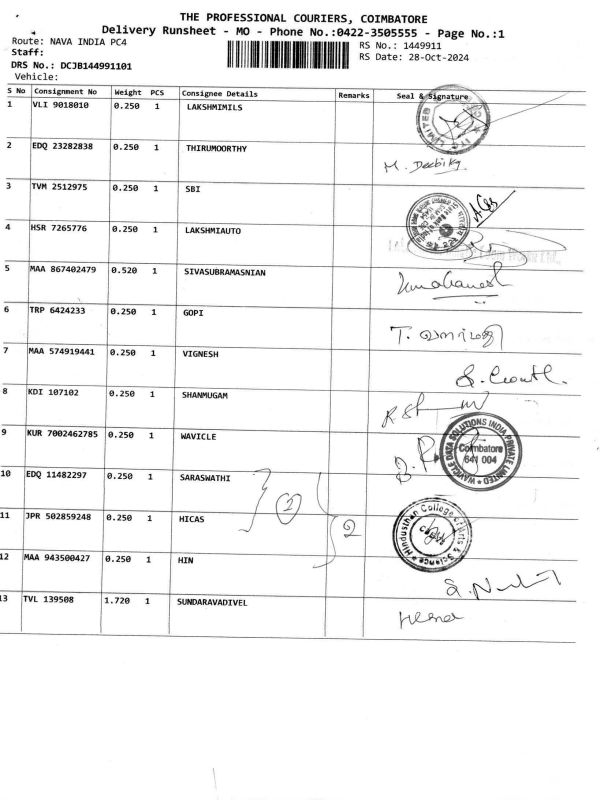 THE PROFESSIONAL COURIERS, COIMBATORE
Delivery Runsheet - MO - Phone No.:0422-3505555 - Page No.:1
Route: NAVA INDIA PC4
RS No.: 1449911
Staff:
RS Date: 28-Oct-2024
DRS No.: DCJB144991101
Vehicle:
S No Consignment No Weight PCS Consignee Details Remarks Seal & Signature
1 VLI 9018010 0.250 1 LAKSHMIMILS
LIMITED
2 EDQ 23282838 0.250 1 THIRUMOORTHY
M. Deebika
3 TVM 2512975 0.250 1 SBI
4 HSR 7265776 0.250 1 LAKSHMIAUTO
5 MAA 867402479 0.520 1 SIVASUBRAMASNIAN
6 TRP 6424233 0.250 1 GOPI
7 MAA 574919441 0.250 1 VIGNESH
8 KDI 107102 0.250 1 SHANMUGAM
9 KUR 7002462785 0.250 1 WAVICLE
WAVICLE DATA SOLUTIONS INDIA PRIVATE LIMITED
Coimbatore
641 004
10 EDQ 11482297 0.250 1 SARASWATHI
2
11 JPR 502859248 0.250 1 HICAS
2
Hindusthan College of Arts & Science
12 MAA 943500427 0.250 1 HIN
13 TVL 139508 1.720 1 SUNDARAVADIVEL